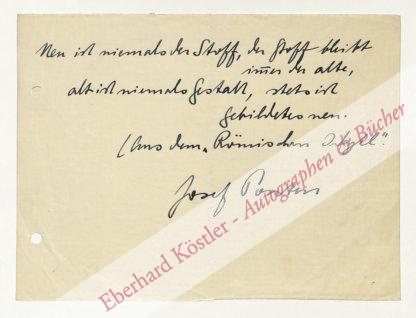 Neu ist niemals der Stoff, der Stoff bleibt
immer der alte,
alt ist niemals Gestalt, stets ist
Gebildetes neu.
(Aus dem „Römischen Idyll“.
Josef Ponten
Eberhard Köstler - Autographen & Bücher